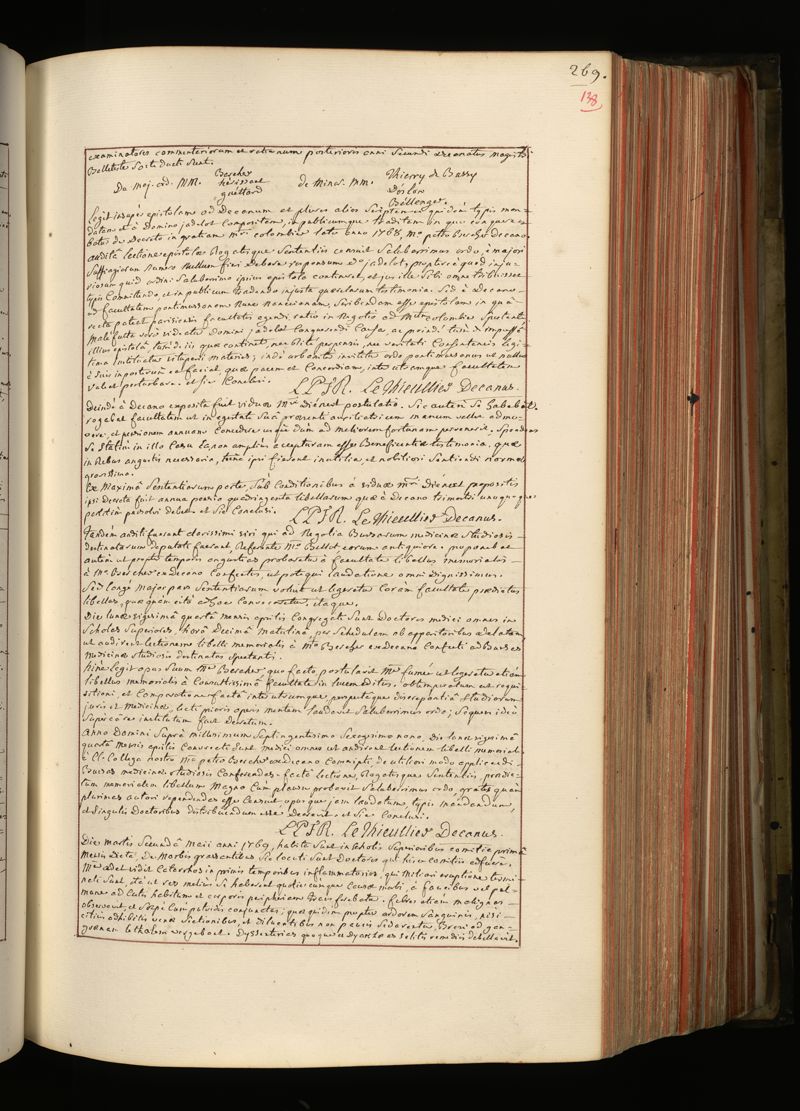 269.
138
examinatores commentariorum et rationum posterioris anni secundi decanatus magistri
Belleteste sorte ducti sunt.
De maj. ord. MM. Bercher
de minor. MM. Thierry de Bussy
guettard
Bellenger.
Legit insuper epistolam ad Decanum et plures alios scriptam
datam et à Domino jadelot compositam, in publicumque traditam in qua
de Decreto in gratiam mri colombier lato anno 1768, mo petro Bercher decano.
auditâ lectione epistolae Rogatisque Sententiis censuit Saluberrimus ordo, è majori
Suffragiorum numero nullum fieri Debere responsum Do jadelot, propterea quod inju-
riosum quid ordini Saluberrimo ipsius epistola contineret, et jus ille sibi omne tribuisset
typis committendo, et in publicum tradendo injusta querelarum testimonia. Sed à Decano
ad facultatem pontimussonam nunc nanceianam, scribendam esse epistolam in quâ
recta pateat parisiensis facultatis agendi ratio in negotio ad Mrum colombier Spectante
illius epistolâ, tum de iis quae continet,
Suis importunum ea faciat, quae pacem et Concordiam, inter utramque facultatem
valeat perturbare. et sic Conclusi.
L.P.J.R. Le Thieullier Decanus.
Deinde à Decano exposita fuit viduae Mri Dienert postulatio. Sic autem se habebat.
rogabat facultatem ut in egestate suâ praesenti auxiliatricem manum vellet admo-
vere, et pensionem annuam concedere usque dum ad meliorem fortunam perveneret. Spondens
Se Statim in illo casu non amplius accepturam esse Beneficentiae testimonia, quae
in rebus angustis necessaria, tunc ipsi fierent inutilia, et nobiliori Sentiendi normae
Ex Maximâ Sententiarum parte, Sub Conditionibus à viduâ mri Dienert propositis
ipsi Decreta fuit annua pensio quadringenta libellarum quae à Decano trimestri unoquoque
persolvi debet. et sic Conclusi.
L.P.J.R. Le Thieullier Decanus.
Tandem auditi fuerunt clarissimi viri qui ad Negotia Bursarum medicinae Studiosis
destinatarum Deputati fuerant, Referente Mo Bellot eorum antiquiore. proponebat
autem ut propter temporis angustias probaretur à facultate libellus memorialis
à Mo Bercher exdecano confectus, utpote qui laudatione omni dignissimus.
Sed longe major pars Sententiarum voluit ut legeretur coram facultate praedictus
libellus, quae quam citò adhoc Convocaretur, itaque.
Die lunae vigesimâ quartâ mensis aprilis Congregati Sunt Doctores medici omnes in
Scholis Superioribus, horâ Decimâ matutinâ, per schedulam ab apparitoribus delatam
ut audirent lectionem libelli memorialis à Mo Bercher exDecano confecti ad bursas
medicinae studiosis destinatas spectantis.
hinc legit opus suum Mr Bercher, quo facto postulavit Mr fumée ut legeretur etiam
libellus memorialis à Consultissimâ facultate in lucem editus. obtemperatum est requi-
sitioni, et Comparatione factâ inter utrumque, perspectâque discrepantiâ Studiorum
juris et medicinae, lecti prioris operis mentem laudavit Saluberrimus ordo;
super eâ re institutum fuit Decretum.
Anno Domini Supra millesimum Septingentesimo Sexagesimo nono. Die lunae vigesimâ
quartâ mensis aprilis Convocati Sunt medici omnes ut audirent lectionem libelli memorialis
à Cl. Collega nostro Mo petro Bercher exdecano Conscripti de utiliori modo applicandi
Bursas medicinae studiosis Conferendas. factâ lectione, Rogatisque Sententiis, praedic-
tum memorialem libellum magno cum plausu probavit Saluberrimus ordo, grates quam
plurimas autori rependendas esse Censuit opusque jam laudatum, typis mandandum,
et Singulis Doctoribus distribuendum esse Decrevit. et Sic Conclusi.
L.P.J.R. Le Thieullier Decanus.
Die martis Secundâ Maii anni 1769, habita Sunt in Scholis Superioribus comitia prima
mensis Dicta, De Morbis grassantibus Sic locuti Sunt Doctores qui hisce comitiis adfuere.
Mr adet vidit Catarrhos in primis temporibus inflammatorios, qui miliari eruptione termi-
nati Sunt, ità ut res melius se haberet quotiescunque Causa morbi, à faucibus vel pul-
mone ad cutis habitum et corporis peripheriam transferebatur. febres etiam malignas
observavit, et Saepe cum putridis conjunctas; quae quidem propter ardorem Sanguinis, nisi
citius adhibitis venae Sectionibus, et diluentibus non paucis Sedarentur, Brevi ad gan-
graenam lethalem vergebant. Dyssenterias quoque et Dyarrhaeas solitis remediis debellavit.